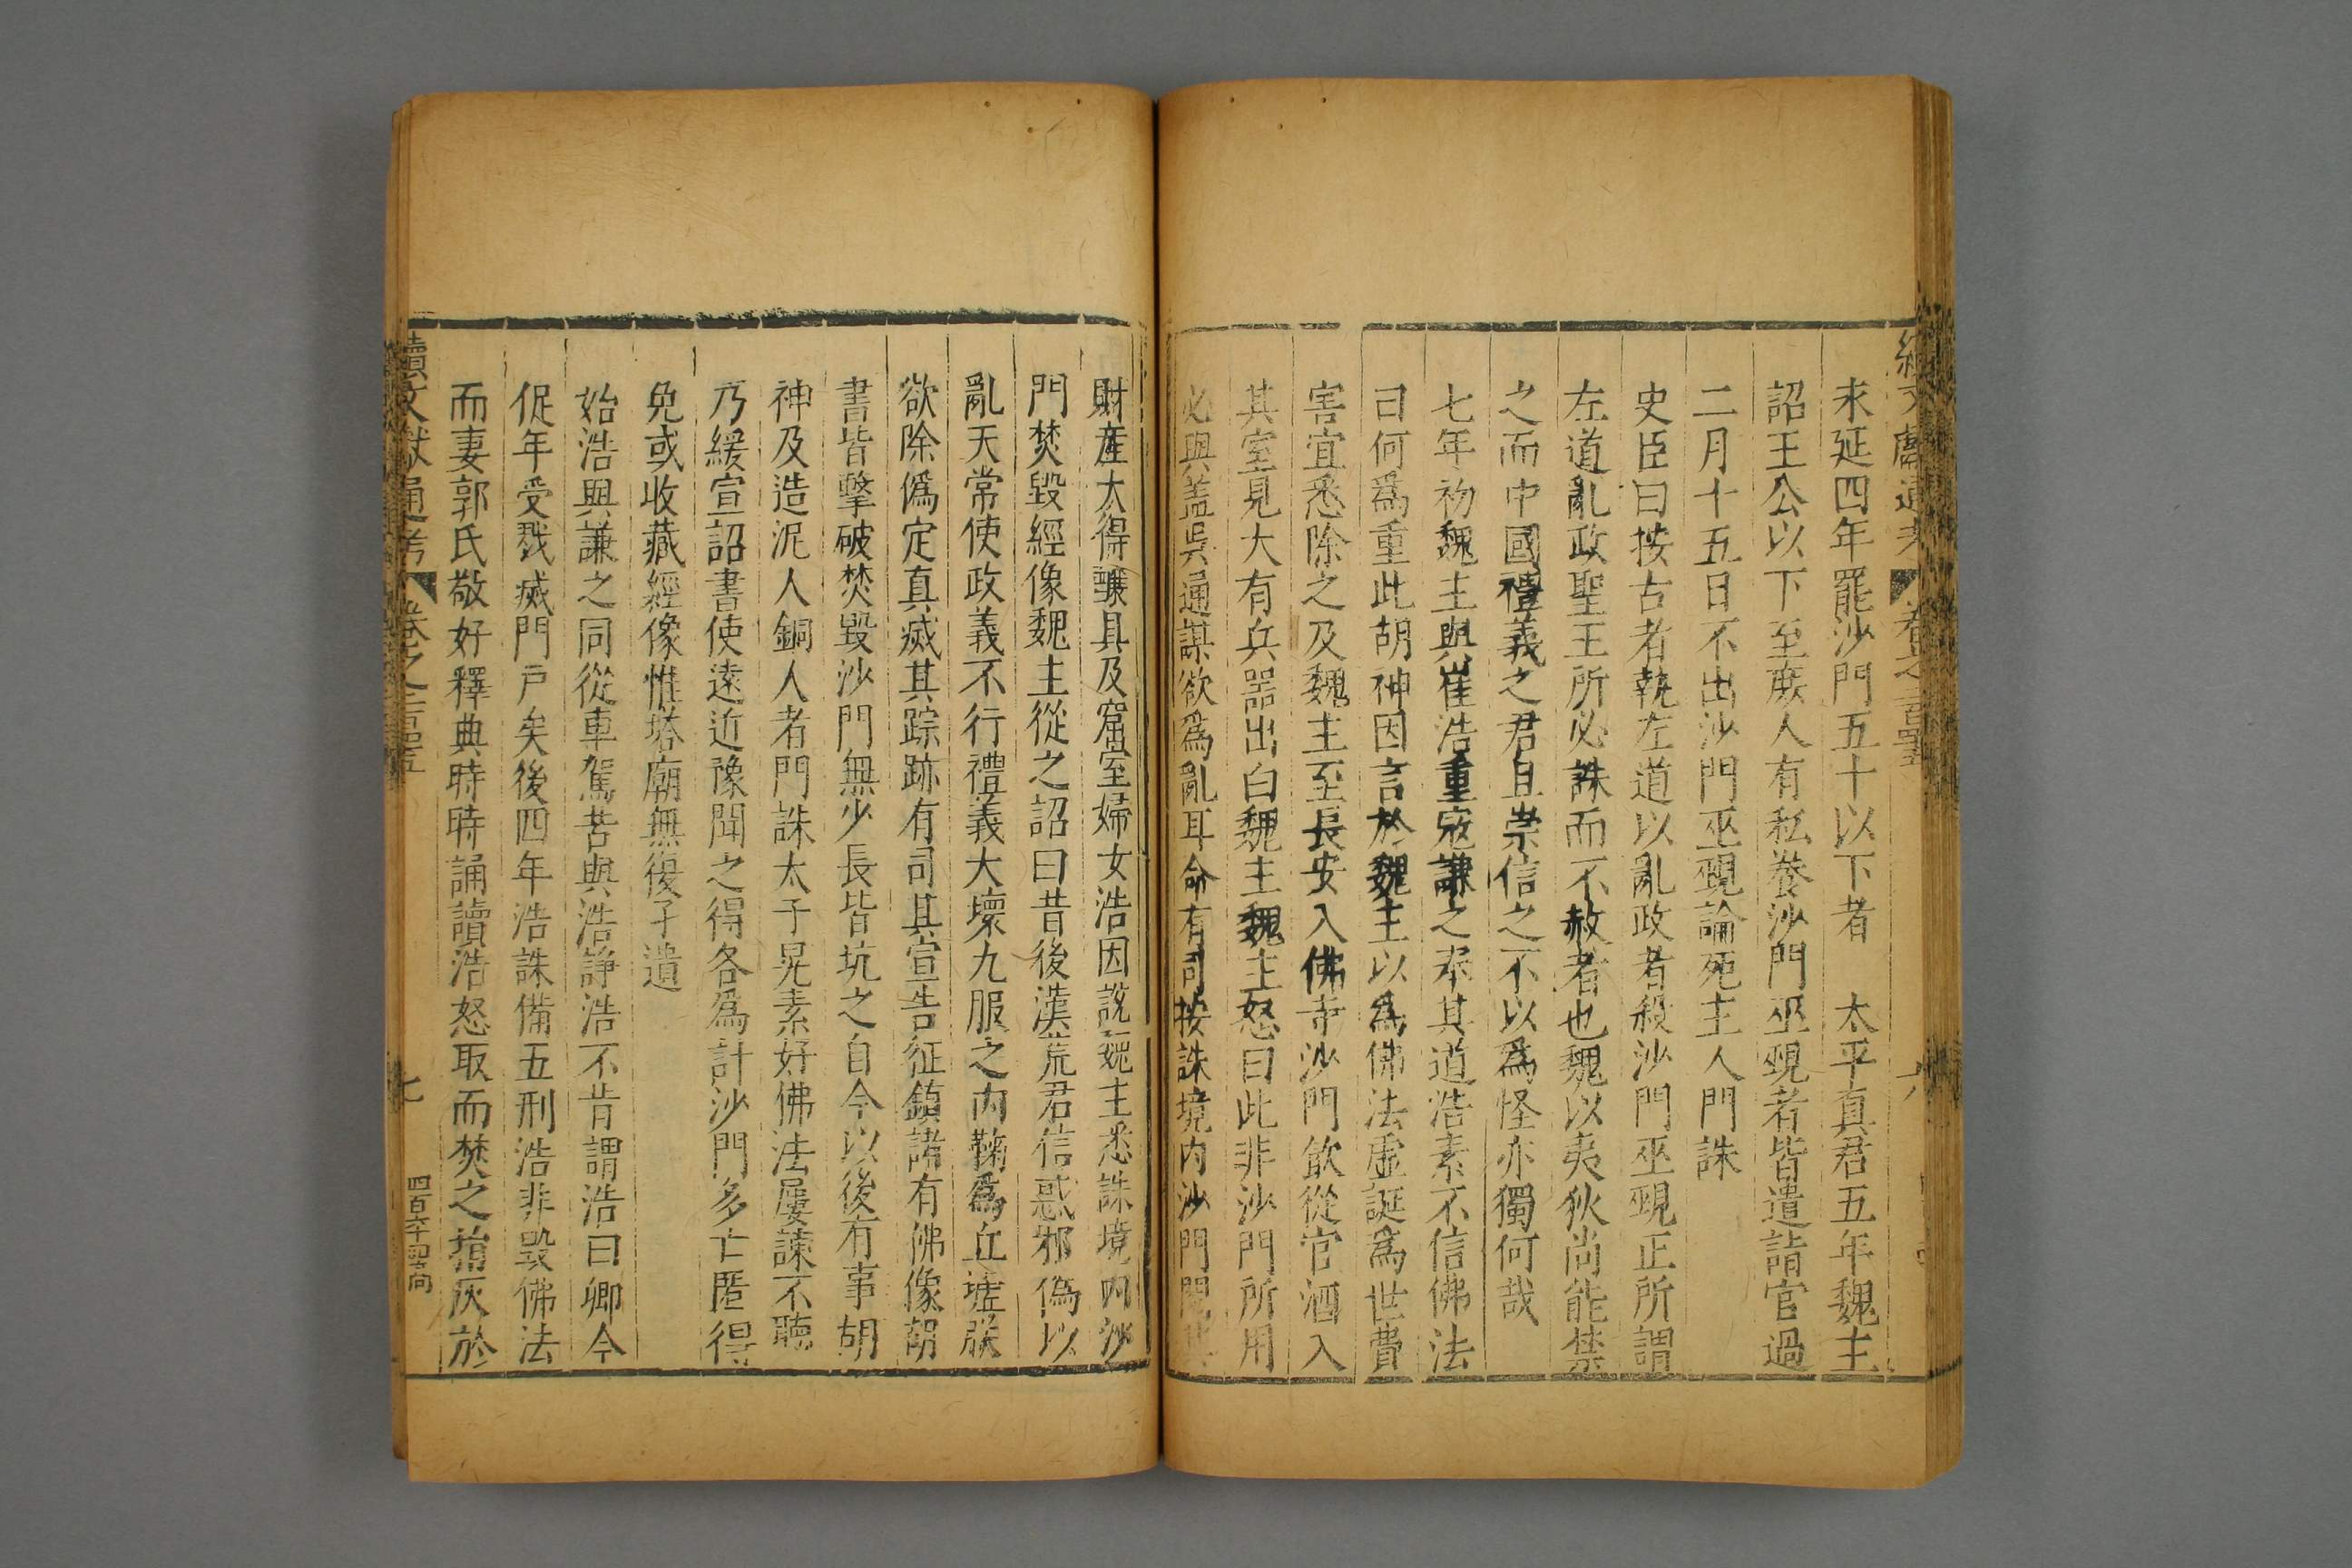 末延四年罷沙門五十以下者　太平真君五年魏主
詔王公以下至庶人有私養沙門巫覡者皆遣詣官過
二月十五日不出沙門巫覡論死主人門誅
史臣曰按古者執左道以亂政者殺沙門巫覡正所謂
左道亂政聖王所必誅而不赦者也魏以夷狄尚能禁
之而中國禮義之君且崇信之不以爲怪亦獨何哉
七年初魏主與崔浩重寇謙之奉其道浩素不信佛法
曰何爲重此胡神因言於魏主以爲佛法虛誕爲世費
害宜悉除之及魏主至長安入佛寺沙門飲從官酒入
其室見大有兵器出白魏主魏主怒曰此非沙門所用
必與盖吳通謀欲爲亂耳命有司按誅境内沙門閱其
財產大得釀具及窟室婦女浩因說魏主悉誅境内沙
門焚毀經像魏主從之詔曰昔後漢荒君信惑邪僞以
亂天常使政義不行禮義大壞九服之内鞠爲丘墟朕
欲除僞定真㓕其踪跡有司其宣告征鎮諸有佛像胡
書皆擊破焚毀沙門無少長皆坑之自今以後有事胡
神及造泥人銅人者門誅太子晃素好佛法屢諫不聽
乃緩宣詔書使遠近豫聞之得各爲計沙門多亡匿得
免或收藏經像惟塔廟無復孑遺
始浩與謙之同從車駕苦與浩諍浩不肯謂浩曰卿今
促年受戮㓕門戶矣後四年浩誅備五刑浩非毀佛法
而妻郭氏敬好釋典時時誦讀浩怒取而焚之捐灰於
續文獻通考　卷之二百四十五　七